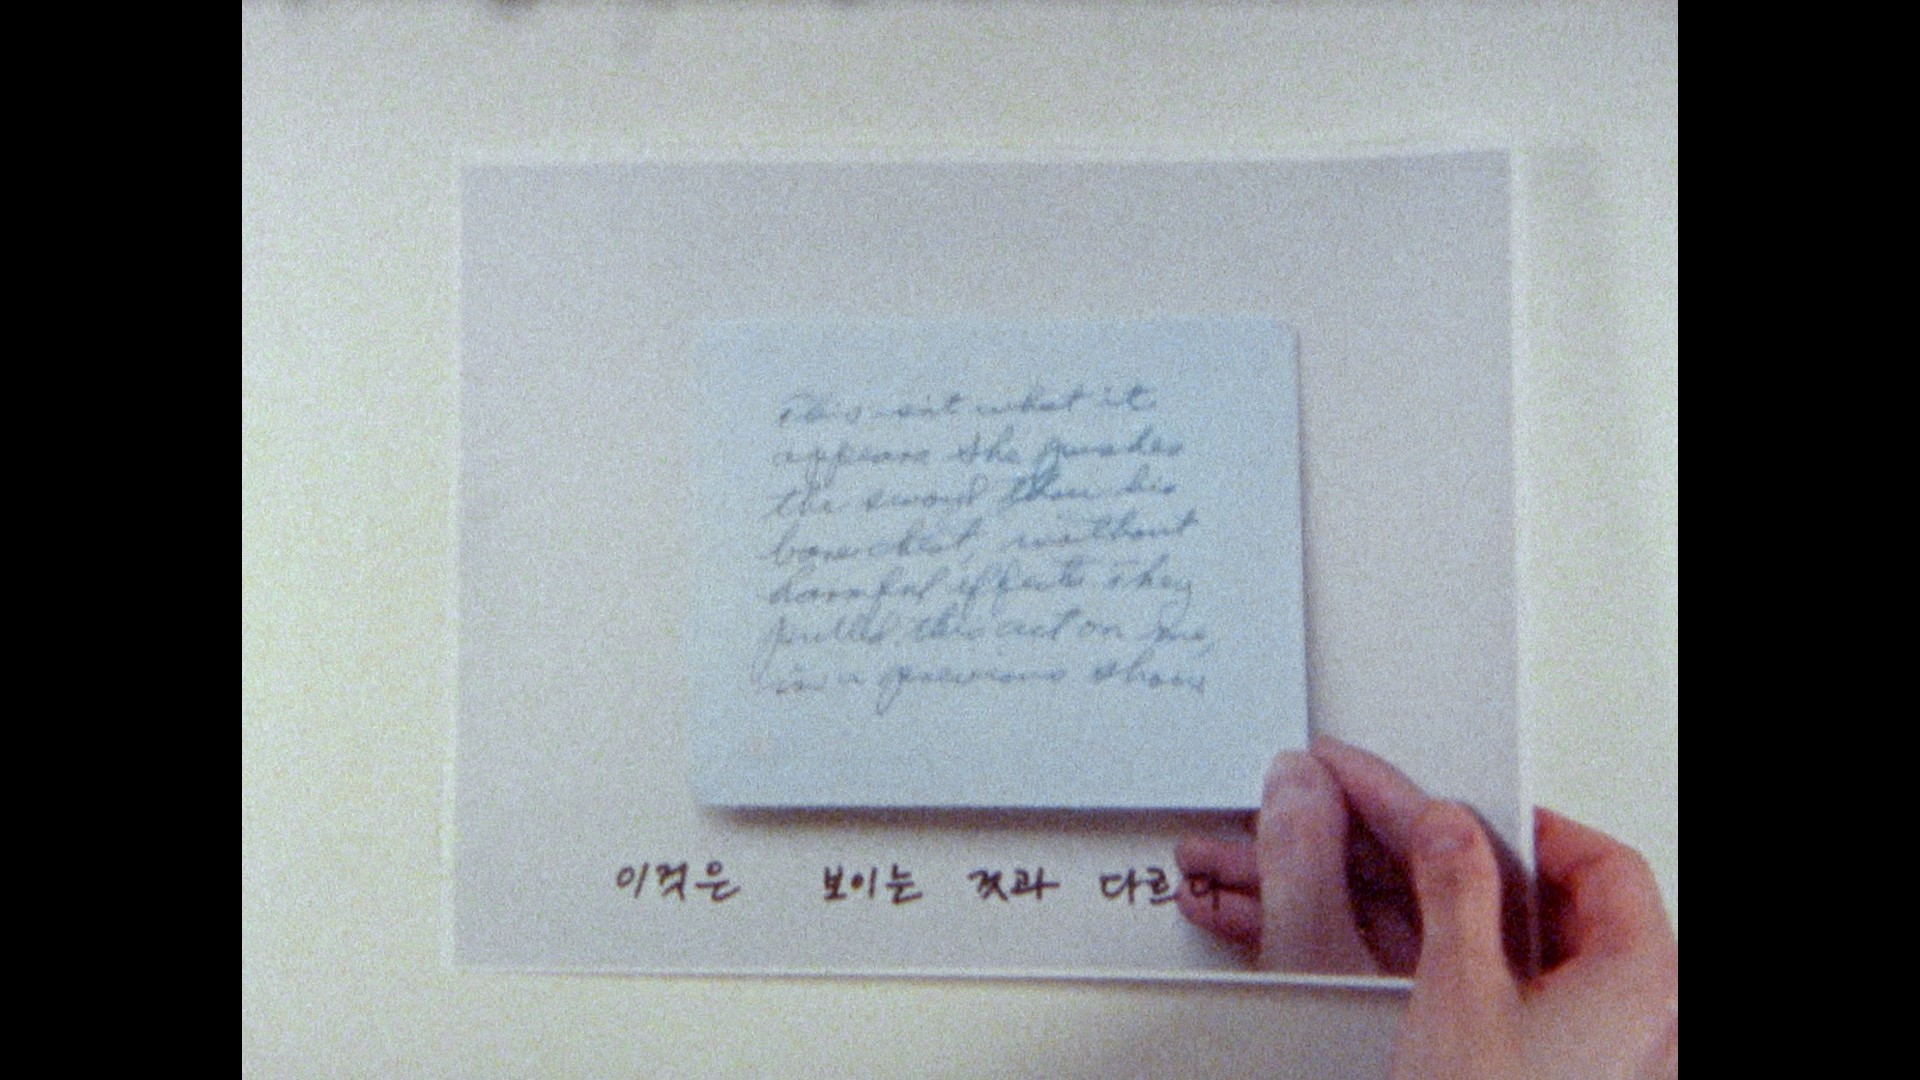 This isn't what it
appears she pushes
the sword thru his
bare chest, without
harmful effects They
pulled this act on me,
in a previous show
이것은 보이는 것과 다르다